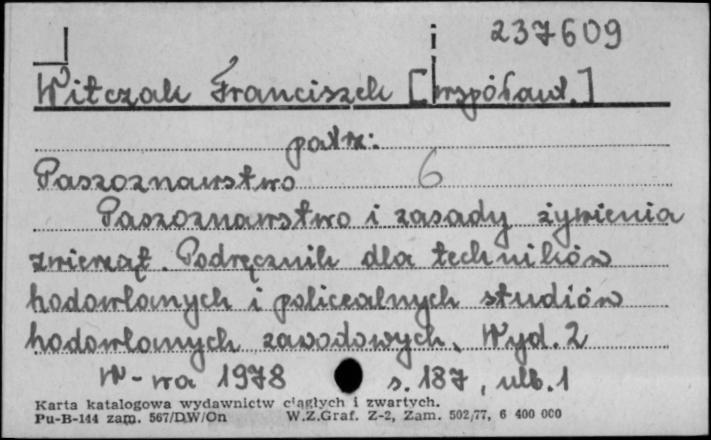 237609
Witczak Franciszek [współaut.]
patrz:
Paszoznawstwo 6
Paszoznawstwo i zasady żywienia
zwierząt. Podręcznik dla techników
hodowlanych i policealnych studiów
hodowlanych zawodowych. Wyd. 2
W-wa 1978 s. 187, ulb. 1
Karta katalogowa wydawnictw ciągłych i zwartych.
Pu-B-144 zam. 567/DW/On W.Z.Graf. Z-2, Zam. 502/77, 6 400 000